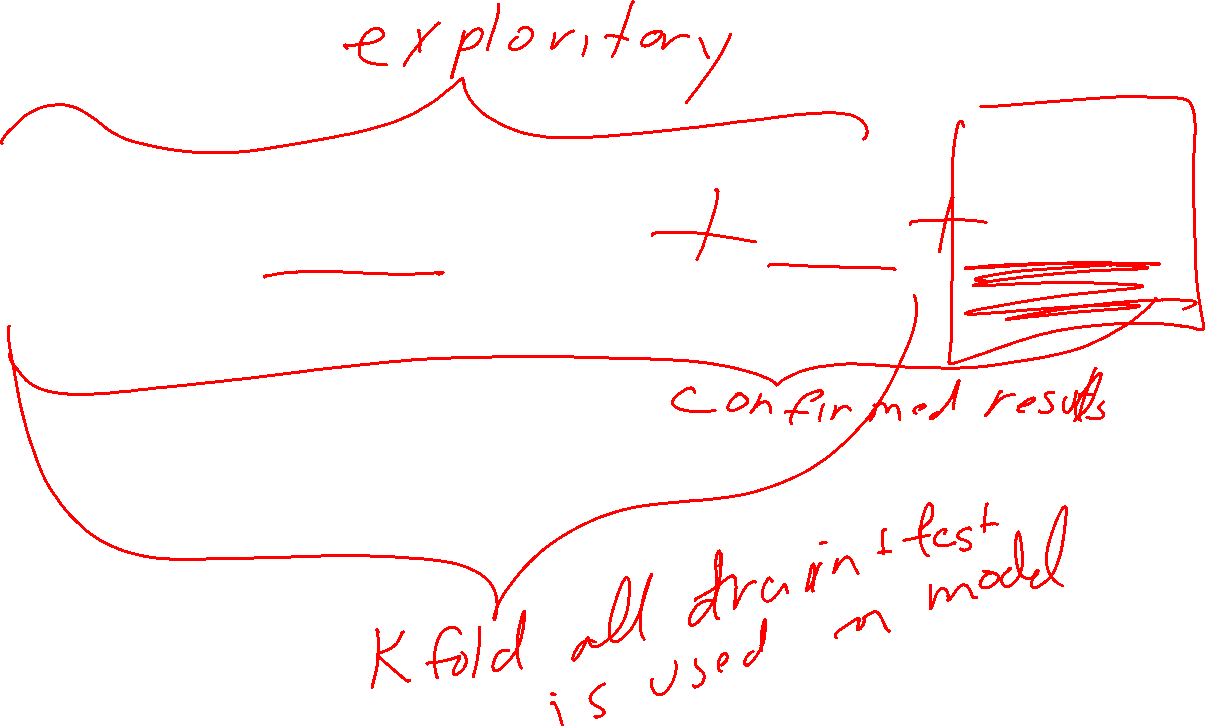 exploritory
+ +
confirmed results
K fold all train + test
is used in model